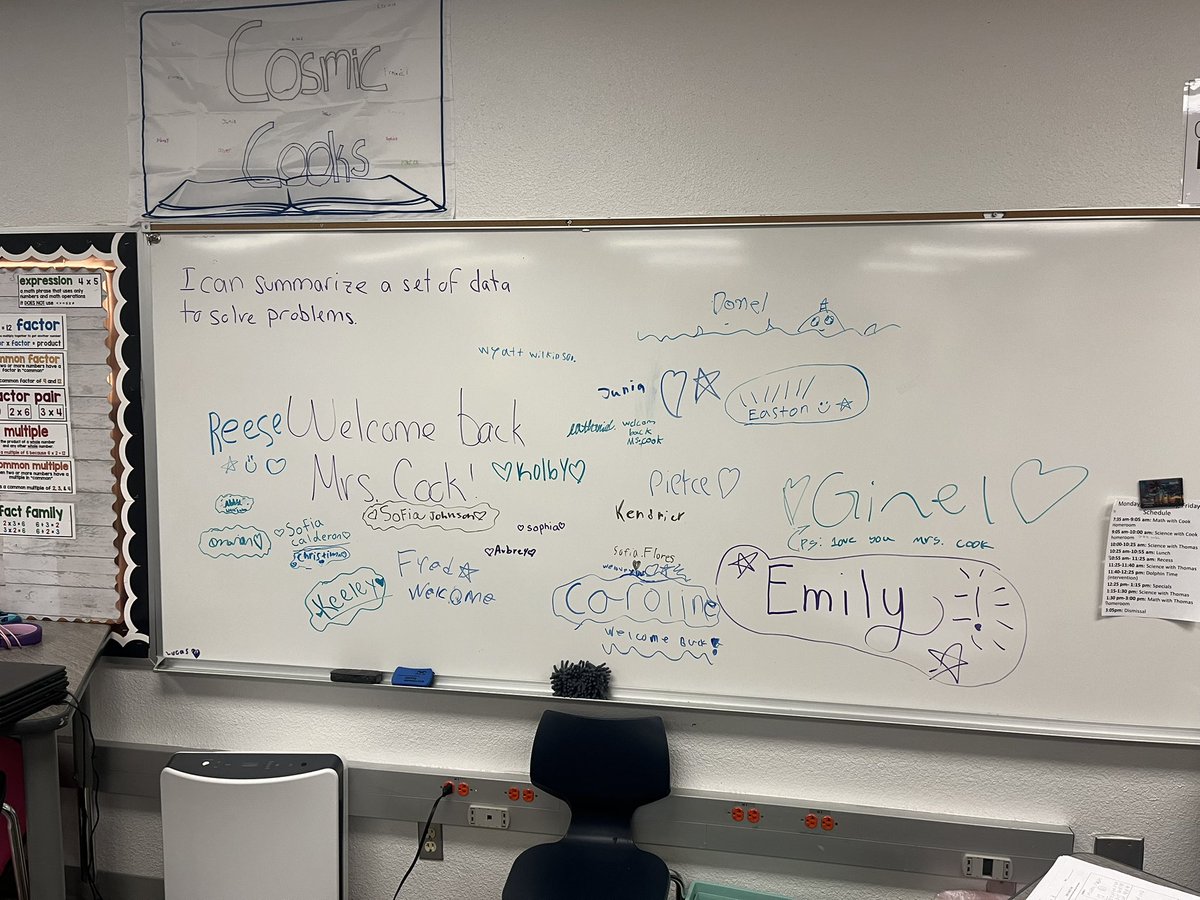 Cosmic
Cooks
I can summarize a set of data
to solve problems.
Donel
Wyatt Wilkinson
Junia
Easton
Reese
Welcome back
Mrs. Cook!
nathaniel
welcom
back
Ms.cook
Kolby
Pierce
Ginel
Ps: love you mrs. cook
Sofia Johnson
Kendrick
sophia
Sofia
calderon
christina
Aubrey
Sofia.Flores
Fred
Welcome
Keeley
Caroline
welcome Back!
Emily
Lucas
expression 4 x 5
a math phrase that uses only
numbers and math operations
factor
factor x factor = product
common factor
actor pair
2 x 6 3 x 4
multiple
the product of a whole number
and any other whole number.
ommon multiple
fact family
2 x 3 = 6 6 ÷ 3 = 2
3 x 2 = 6 6 ÷ 2 = 3
Schedule
7:35 am-9:05 am: Math with Cook
homeroom
9:05 am-10:00 am: Science with Cook
homeroom
10:00-10:25 am: Science with Thomas
10:25 am-10:55 am: Lunch
10:55 am- 11:25 am: Recess
11:25-11:40 am: Science with Thomas
11:40-12:25 pm: Dolphin Time
(intervention)
12:25 pm- 1:15 pm: Specials
1:15-1:30 pm: Science with Thomas
1:30 pm-3:00 pm: Math with Thomas
homeroom
3:05pm: Dismissal